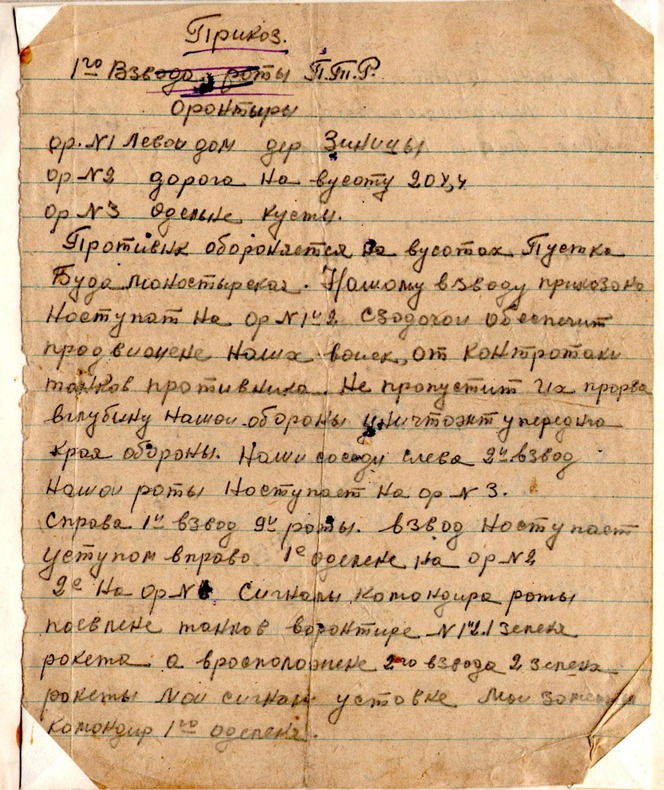 Приказ.
1го Взвода роты П.Т.Р.
Ориентиры
ор. №1 Левой дом дер Зиницы
ор №2 дорога на вусоту 208,4
ор №3 Одельне кусти.
Противнк обороняется на вусотах Пустка
Буда Моностырская. Нашому взводу приказано
Наступат на ор №1 и 2 Сзадачои Обеспечит
продвижене наших воиск, от контротаки
танков противника. Не пропустит их прорва
вглубину нашои обороны уничтожт упередна
края обороны. Наши соседу слева 2й взвод
нашои роты Наступает на ор №3.
Справа 1й взвод 9й роты. взвод Наступает
уступом вправо 1е оделене на ор №2
2е на ор № Сигналы командира роты
поевлене танковворонтире №1 и 2 1 Зелена
рокета а врасположене 2го взвода 2 зелена
рокеты Мои сигнал уставне Мои
командир 1го оделена.